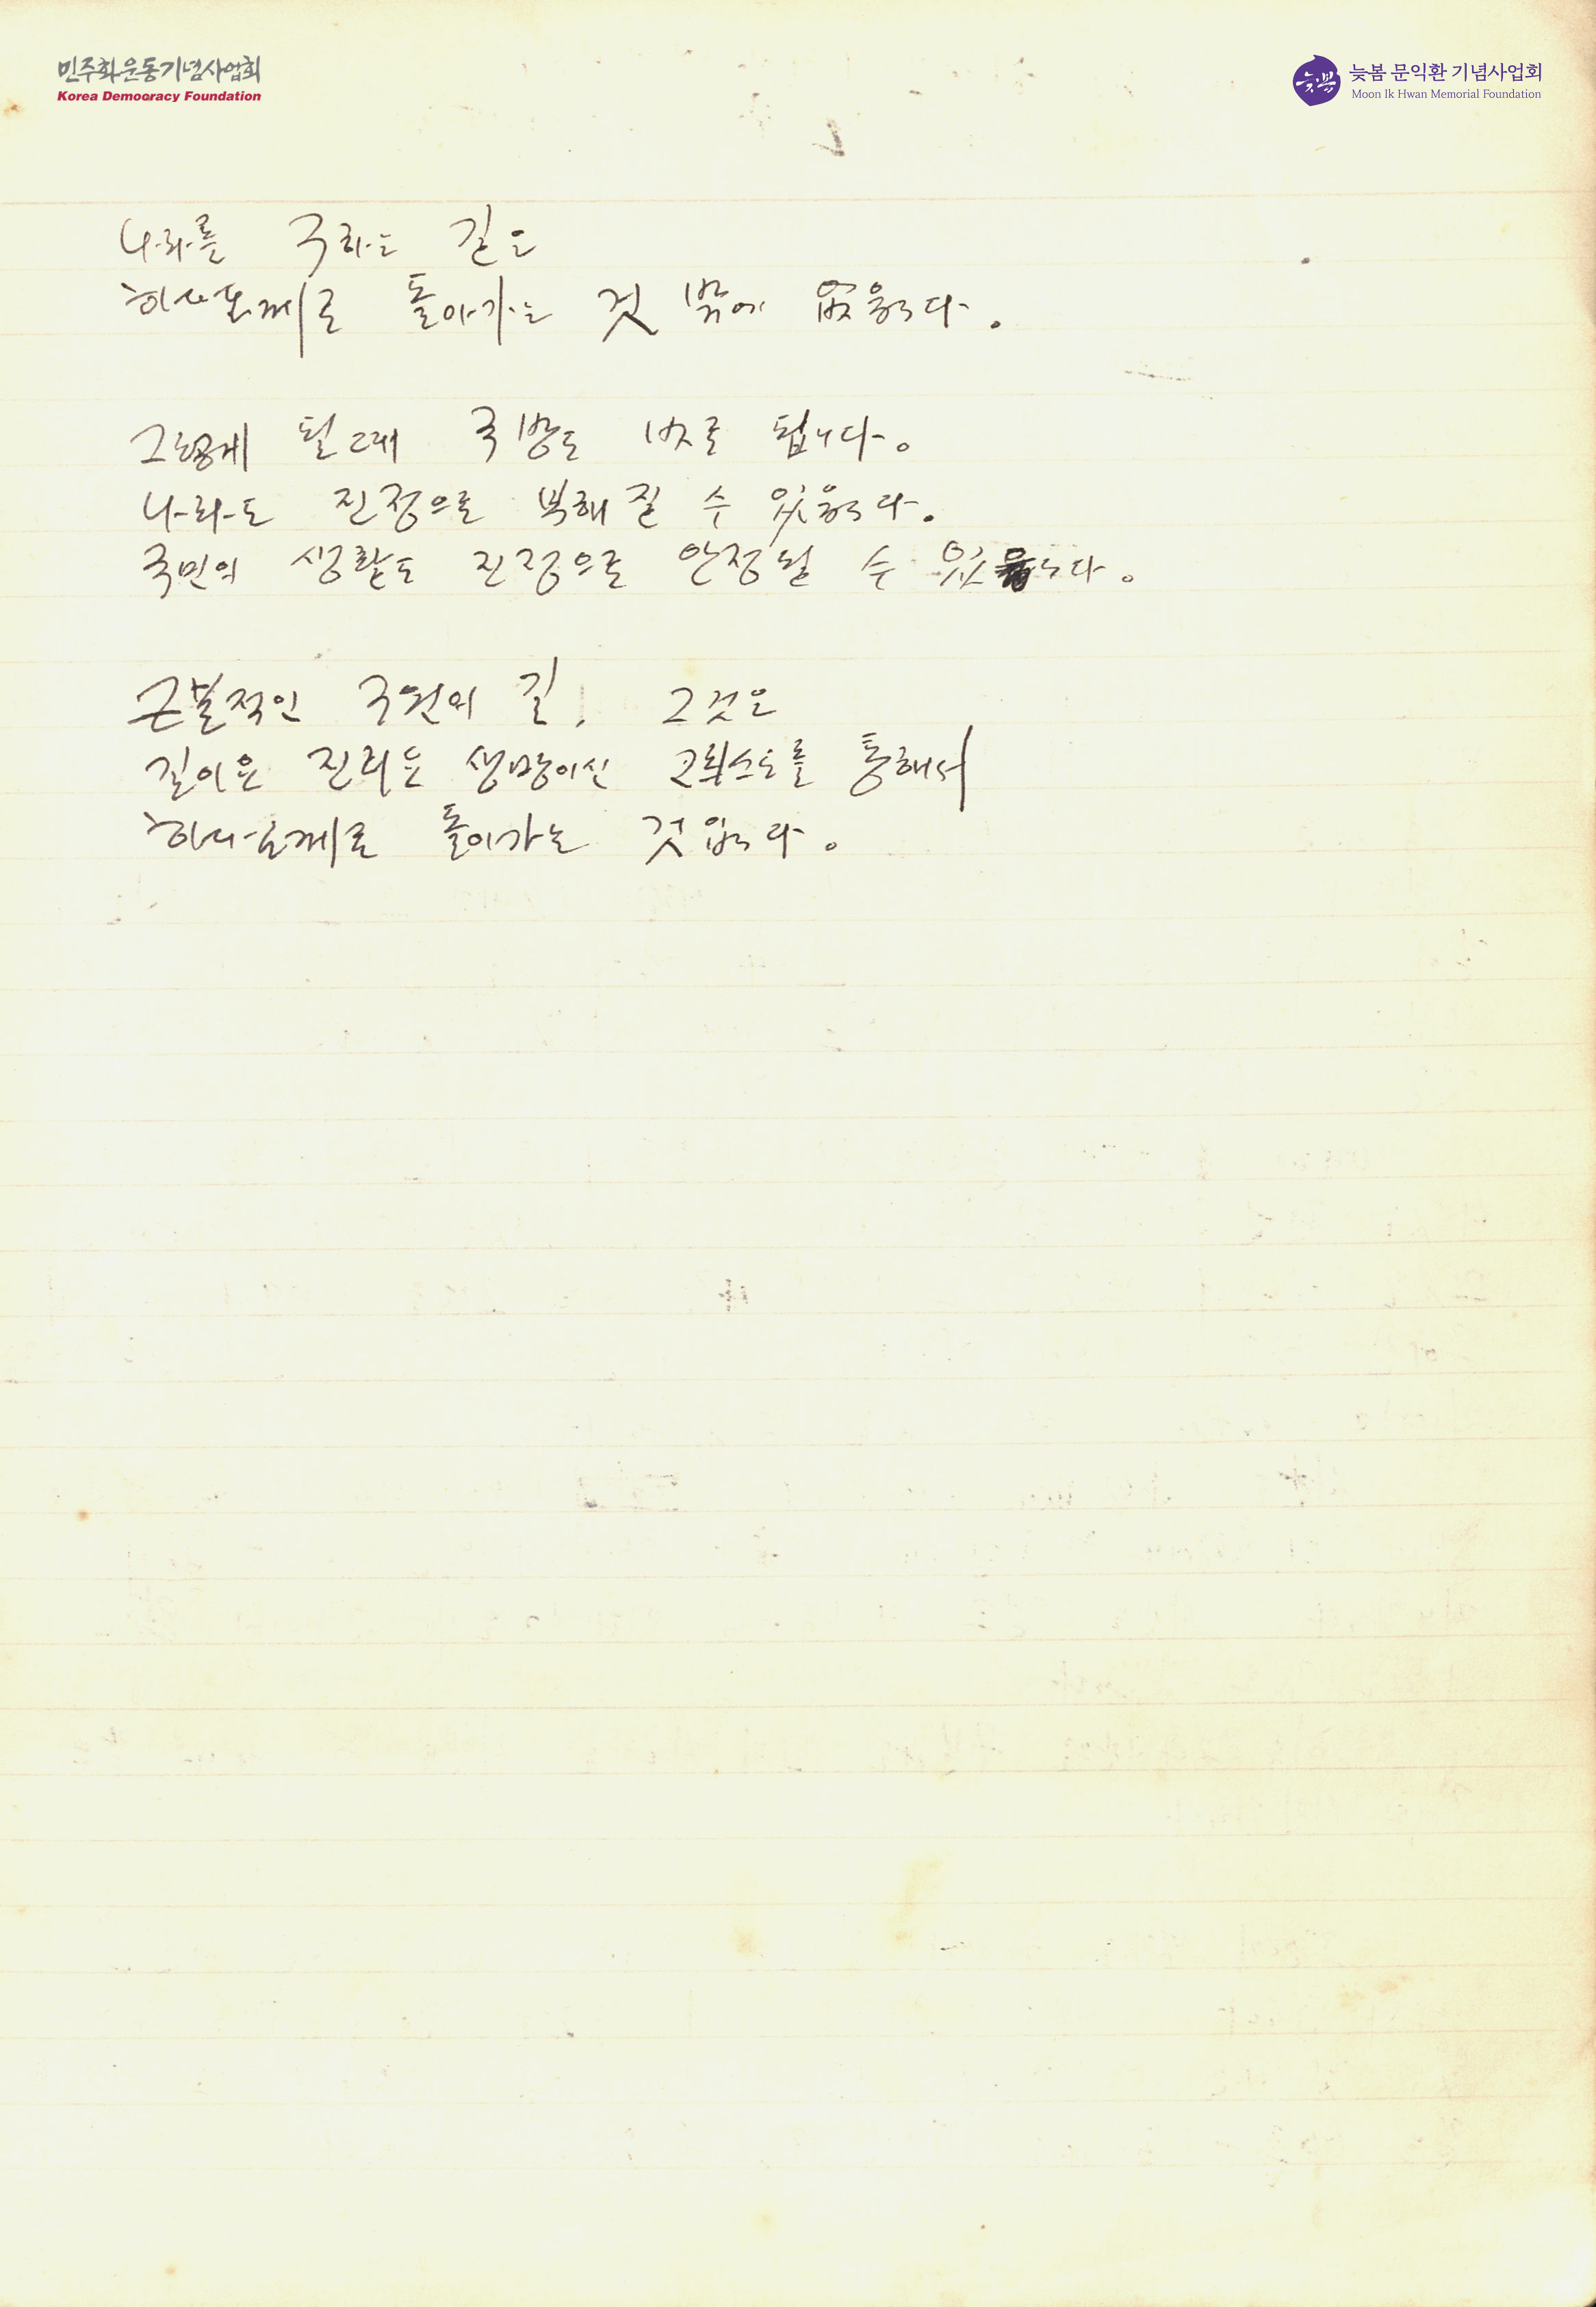 민주화운동기념사업회
Korea Democracy Foundation
늦봄
늦봄 문익환 기념사업회
Moon Ik Hwan Memorial Foundation
나라를 구하는 길은
하나님께로 돌아가는 것 밖에 없읍니다.
그렇게 될 때 국방도 바로 됩니다.
나라도 진정으로 부해질 수 있읍니다.
국민의 생활도 진정으로 안정될 수 있읍니다.
근본적인 구원의 길, 그것은
길이요 진리요 생명이신 그리스도를 통해서
하나님께로 돌아가는 것입니다.